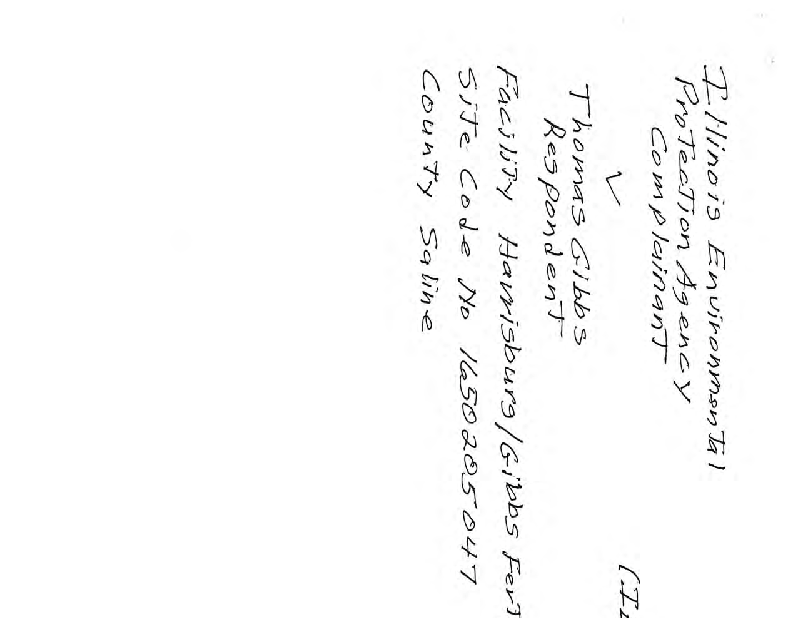 Illinois Environmental
Protection Agency
Complainant
V
Thomas Gibbs
Respondent
(I
Facility Harrisburg/Gibbs Fert
Site Code No 1650205047
County Saline